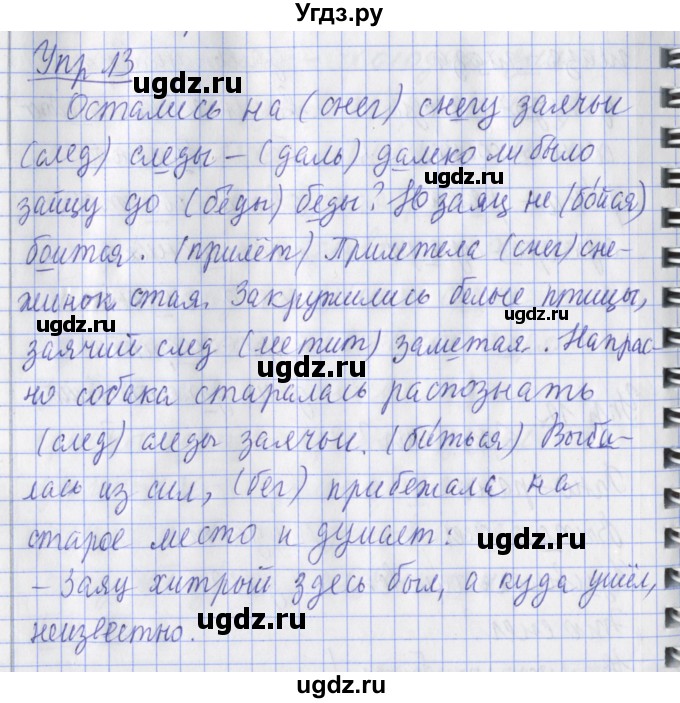 Угдз.ру
Упр 13
ugdz.ru
Остались на (снег) снегу заячьи
(след) следы – (даль) далеко ли было
ugdz.ru ugdz.ru
зайцу до (бе́ды) беды? Но заяц не (бо́йся)
боится. (прилёт) Прилетела (снег) сне-
ugdz.ru
жинок стая. Закружились белые птицы,
ugdz.ru
заячий след (метит) заметая. Напрас-
ugdz.ru
но собака старалась распознать
(след) следы заячьи. (би́ться) Выби-
ugdz.ru
лась из сил, (бег) прибежала на
старое место и думает:
ugdz.ru
– Заяц хитрый здесь был, а куда ушёл,
ugdz.ru
неизвестно.
ugdz.ru